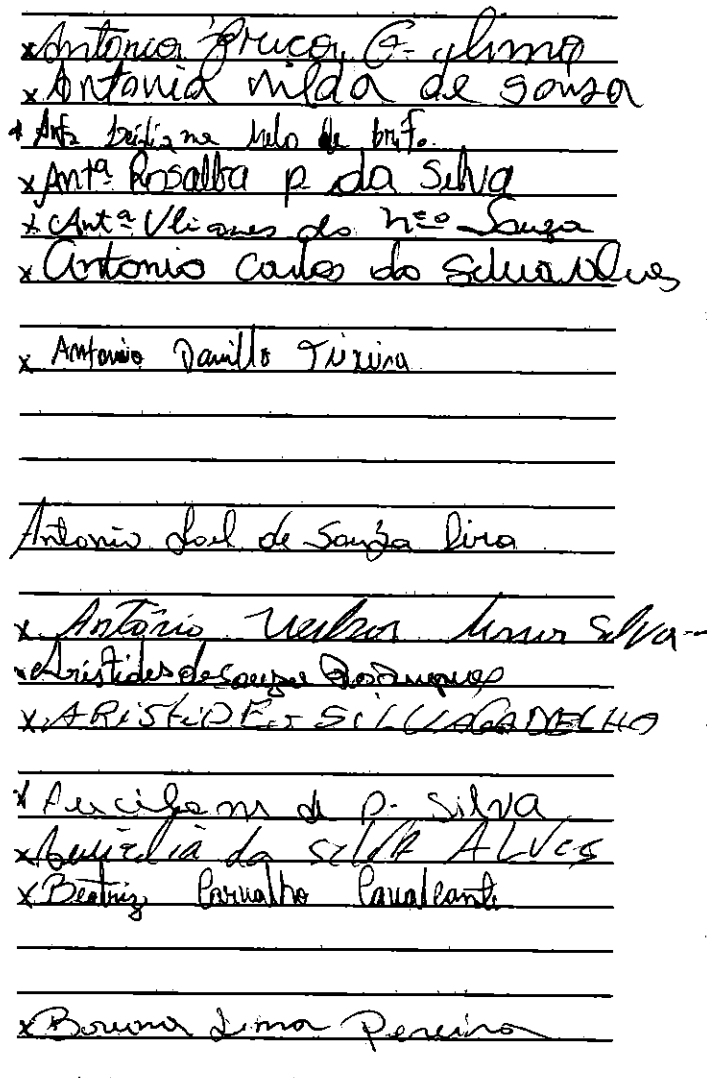 x Antonia
x Antonia nilda de Souza
x Antª melo de brito
x Antª Rosalba p da Silva
x Antª do Souza
x Antonio Carlos da Silva Alves
x Antonio Danillo Teixeira
Antonio Joel de Souza Lira
x Antônio Silva
x Aristides de Souza Rodrigues
x ARISTIDES SILVA GADELHO
x de p. Silva
x da SILVA ALVES
x Beatriz Carvalho Cavalcante
x Bruna Lima Pereira